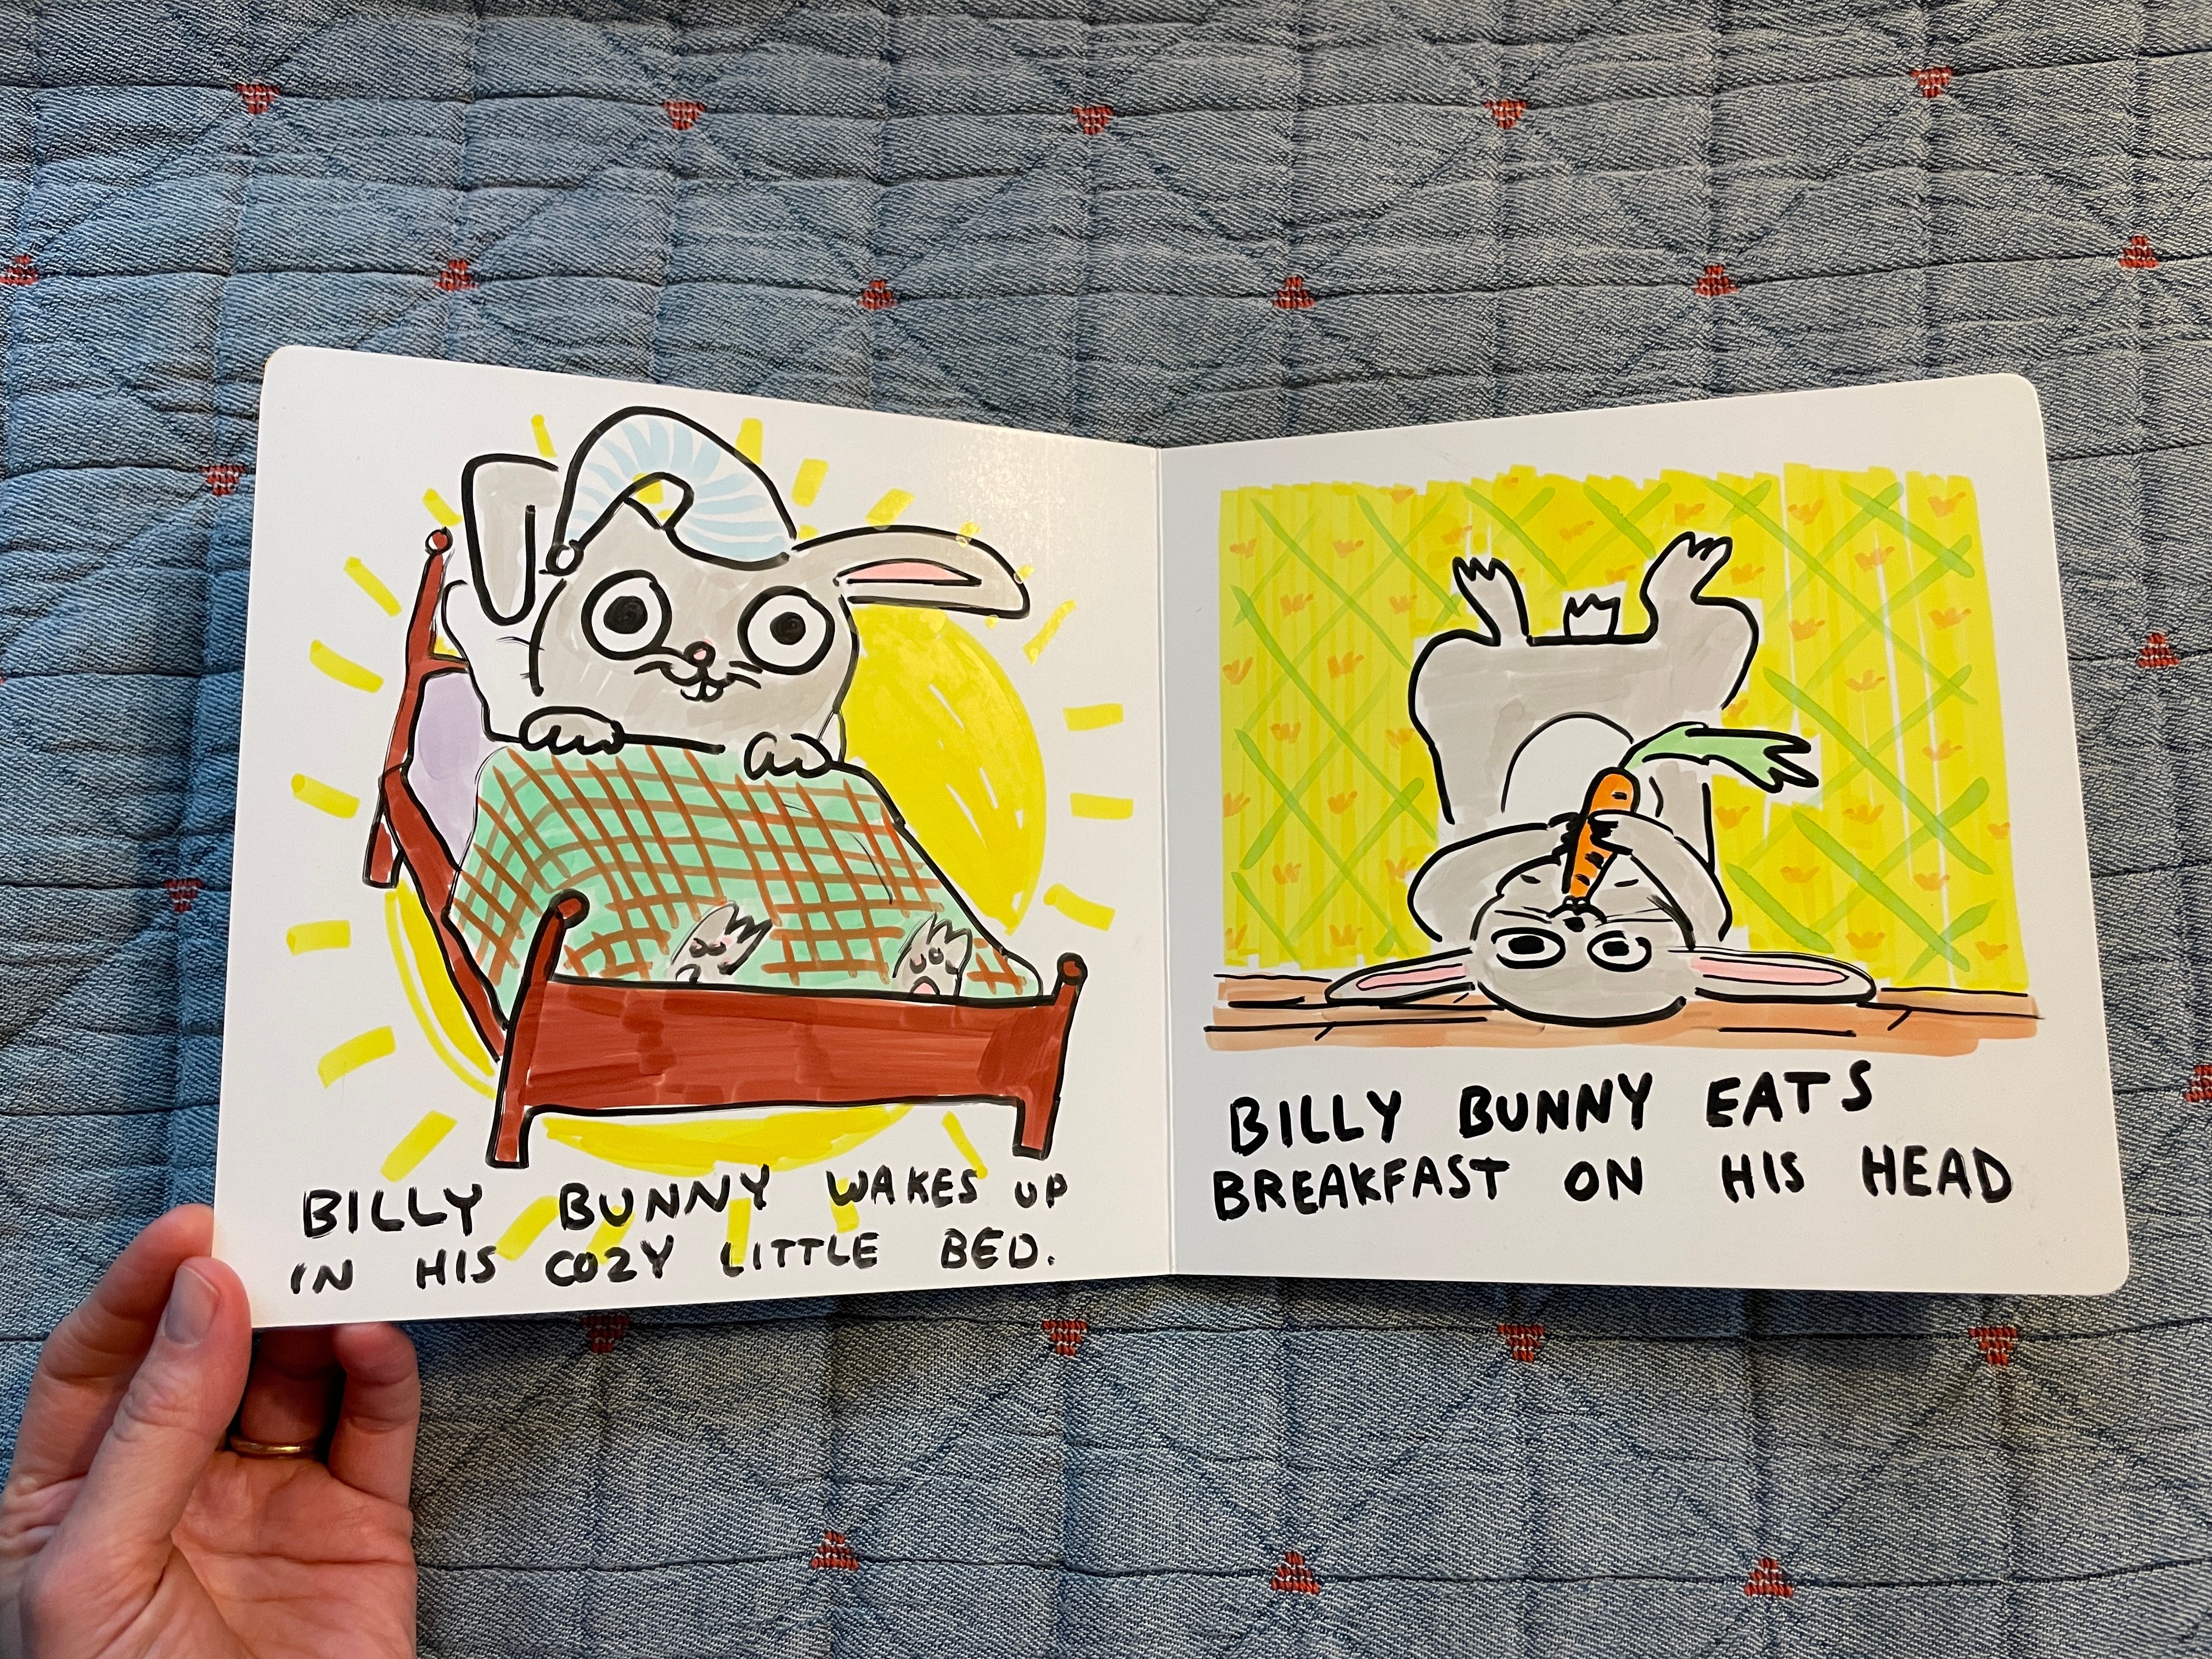 BILLY BUNNY WAKES UP
IN HIS COZY LITTLE BED.
BILLY BUNNY EATS
BREAKFAST ON HIS HEAD